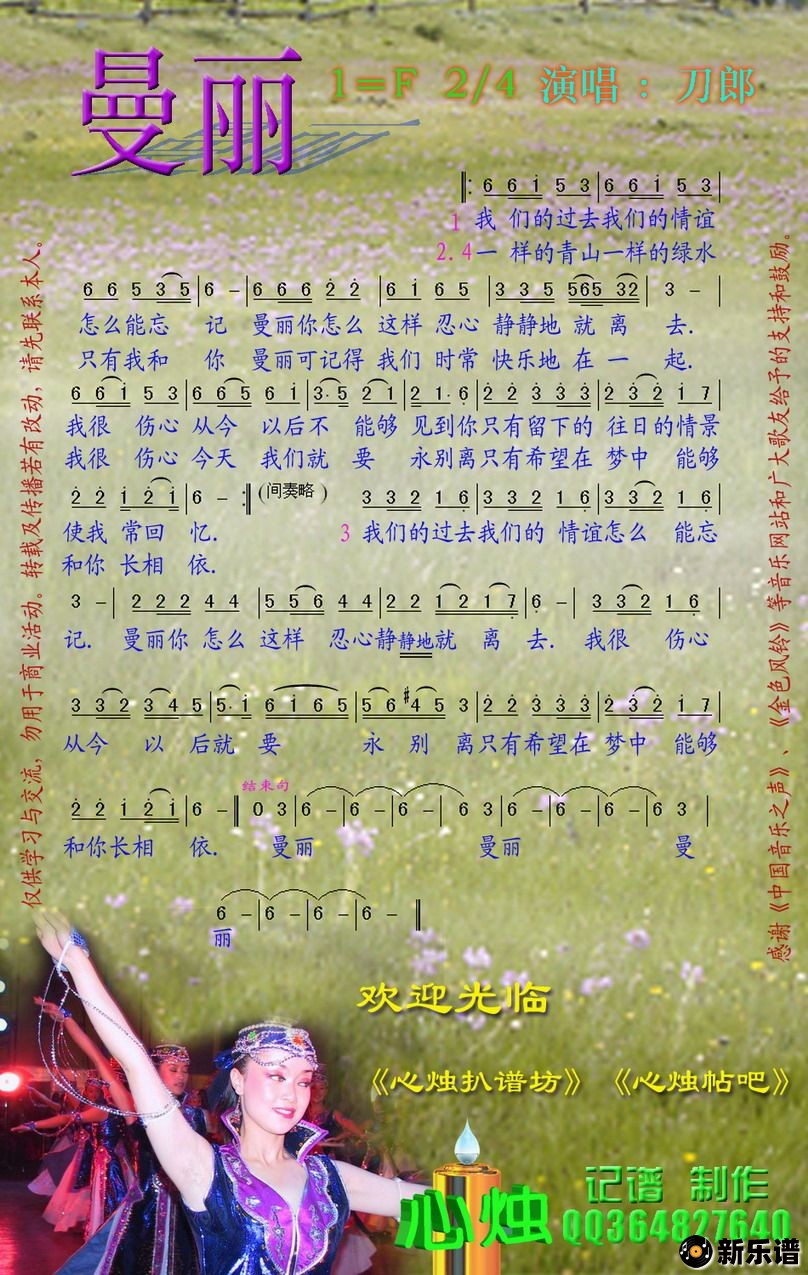 曼丽
1=F 2/4 演唱：刀郎
‖: 6 6 i 5 3 | 6 6 i 5 3 |
1 我 们的过去我们的情谊
2.4 一 样的青山一样的绿水
6 6 5 3 5 | 6 - | 6 6 6 2 2 | 6 i 6 5 | 3 3 5 565 32 | 3 - |
怎么能忘 记 曼丽你怎么 这样 忍心 静静地 就 离 去.
只有我和 你 曼丽可记得 我们 时常 快乐地 在 一 起.
6 6 i 5 3 | 6 6 5 6 i | 3· 5 2 i | 2 1· 6 | 2 2 3 3 3 | 2 3 2 i 7 |
我很 伤心 从今 以后不 能够 见到你只有留下的 往日的情景
我很 伤心 今天 我们就 要 永别离只有希望在 梦中 能够
2 2 i 2 i | 6 - :‖ (间奏略 ) 3 3 2 1 6 | 3 3 2 1 6 | 3 3 2 1 6 |
使我 常回 忆. 3 我们的过去我们的 情谊怎么 能忘
和你 长相 依.
3 - | 2 2 2 4 4 | 5 5 6 4 4 | 2 2 1 2 1 7 | 6 - | 3 3 2 1 6 |
记. 曼丽你 怎么 这样 忍心静静地就 离 去. 我很 伤心
3 3 2 3 4 5 | 5· i 6 i 6 5 | 5 6 #4 5 3 | 2 2 3 3 3 | 2 3 2 i 7 |
从今 以 后就 要 永 别 离只有希望在 梦中 能够
结束句
2 2 i 2 i | 6 - ‖ 0 3 | 6 - | 6 - | 6 - | 6 3 | 6 - | 6 - | 6 - | 6 3 |
和你长相 依. 曼丽 曼丽 曼
6 - | 6 - | 6 - | 6 - ‖
丽
仅供学习与交流，勿用于商业活动。转载及传播若有改动，请先联系本人。
感谢《中国音乐之声》、《金色风铃》等音乐网站和广大歌友给予的支持和鼓励。
欢迎光临
《心烛扒谱坊》 《心烛帖吧》
心烛 记谱 制作
QQ364827640
新乐谱